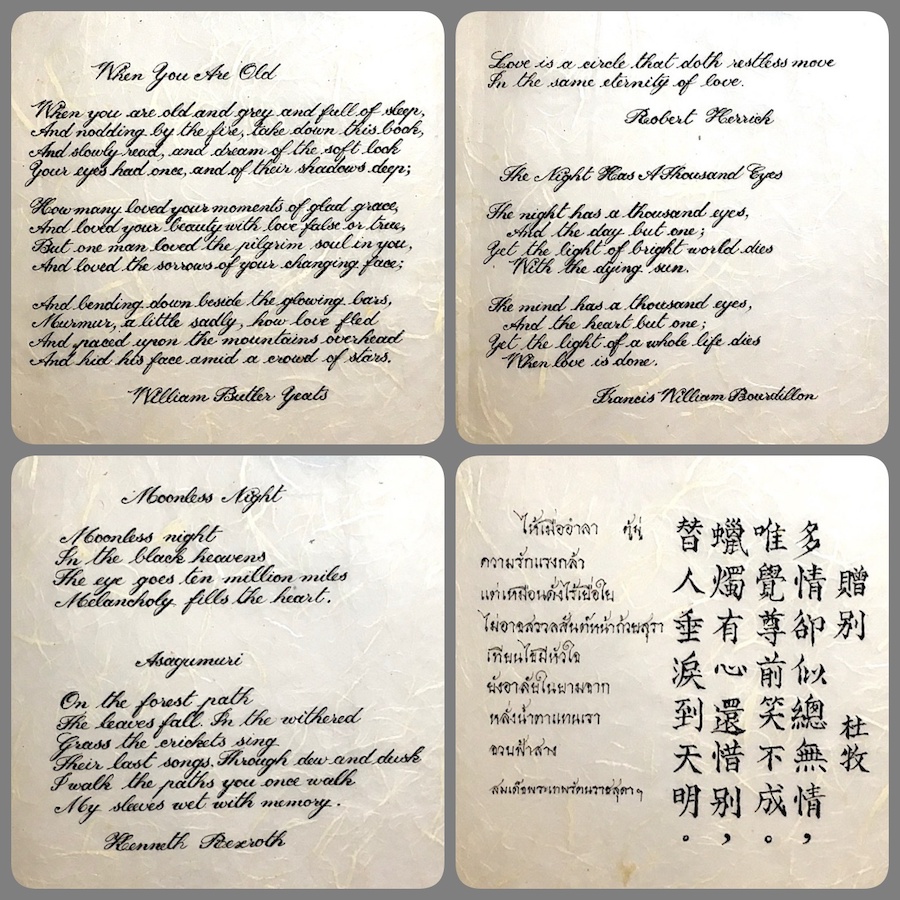 When You Are Old
When you are old and grey and full of sleep,
And nodding by the fire, take down this book,
And slowly read, and dream of the soft look
Your eyes had once, and of their shadows deep;
How many loved your moments of glad grace,
And loved your beauty with love false or true,
But one man loved the pilgrim soul in you,
And loved the sorrows of your changing face;
And bending down beside the glowing bars,
Murmur, a little sadly, how love fled
And paced upon the mountains overhead
And hid his face amid a crowd of stars.
William Butler Yeats
Love is a circle that doth restless move
In the same eternity of love.
Robert Herrick
The Night Has A Thousand Eyes
The night has a thousand eyes,
And the day but one;
Yet the light of bright world dies
With the dying sun.
The mind has a thousand eyes,
And the heart but one;
Yet the light of a whole life dies
When love is done.
Francis William Bourdillon
Moonless Night
Moonless night
In the black heavens
The eye goes ten million miles
Melancholy fills the heart.
Asagumuri
On the forest path
The leaves fall. In the withered
Grass the crickets sing
Their last songs. Through dew and dusk
I walk the paths you once walk
My sleeves wet with memory.
Kenneth Rexroth
ให้เมื่ออำลา ตู้มู่
ความรักแรงกล้า
แต่เหมือนดั่งไร้เยื่อใย
ไม่อาจสรวลสันต์หน้าถ้วยสุรา
เทียนไขมีหัวใจ
ยังอาลัยในยามจาก
หลั่งน้ำตาแทนเรา
จวบฟ้าสาง
สมเด็จพระเทพรัตนราชสุดาฯ
贈別 杜牧
多情卻似總無情，
唯覺尊前笑不成。
蠟燭有心還惜別，
替人垂淚到天明。